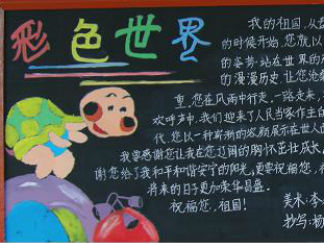 彩色世界
我的祖国,从
的时候开始,您就以
的姿势,站在世界的
的漫漫历史,让您沧
重,您在风雨中行走,一路走来,
欢呼声中,我们迎来了人民当家作主的
代,您以一种崭新的姿颜展示在世人
我要感谢您让我在您辽阔的胸怀茁壮成长
谢您给了我和平和谐安宁的阳光,更要祝福您,
将来的日子更加繁华昌盛。
祝福您,祖国!
美术:李
抄写:杨